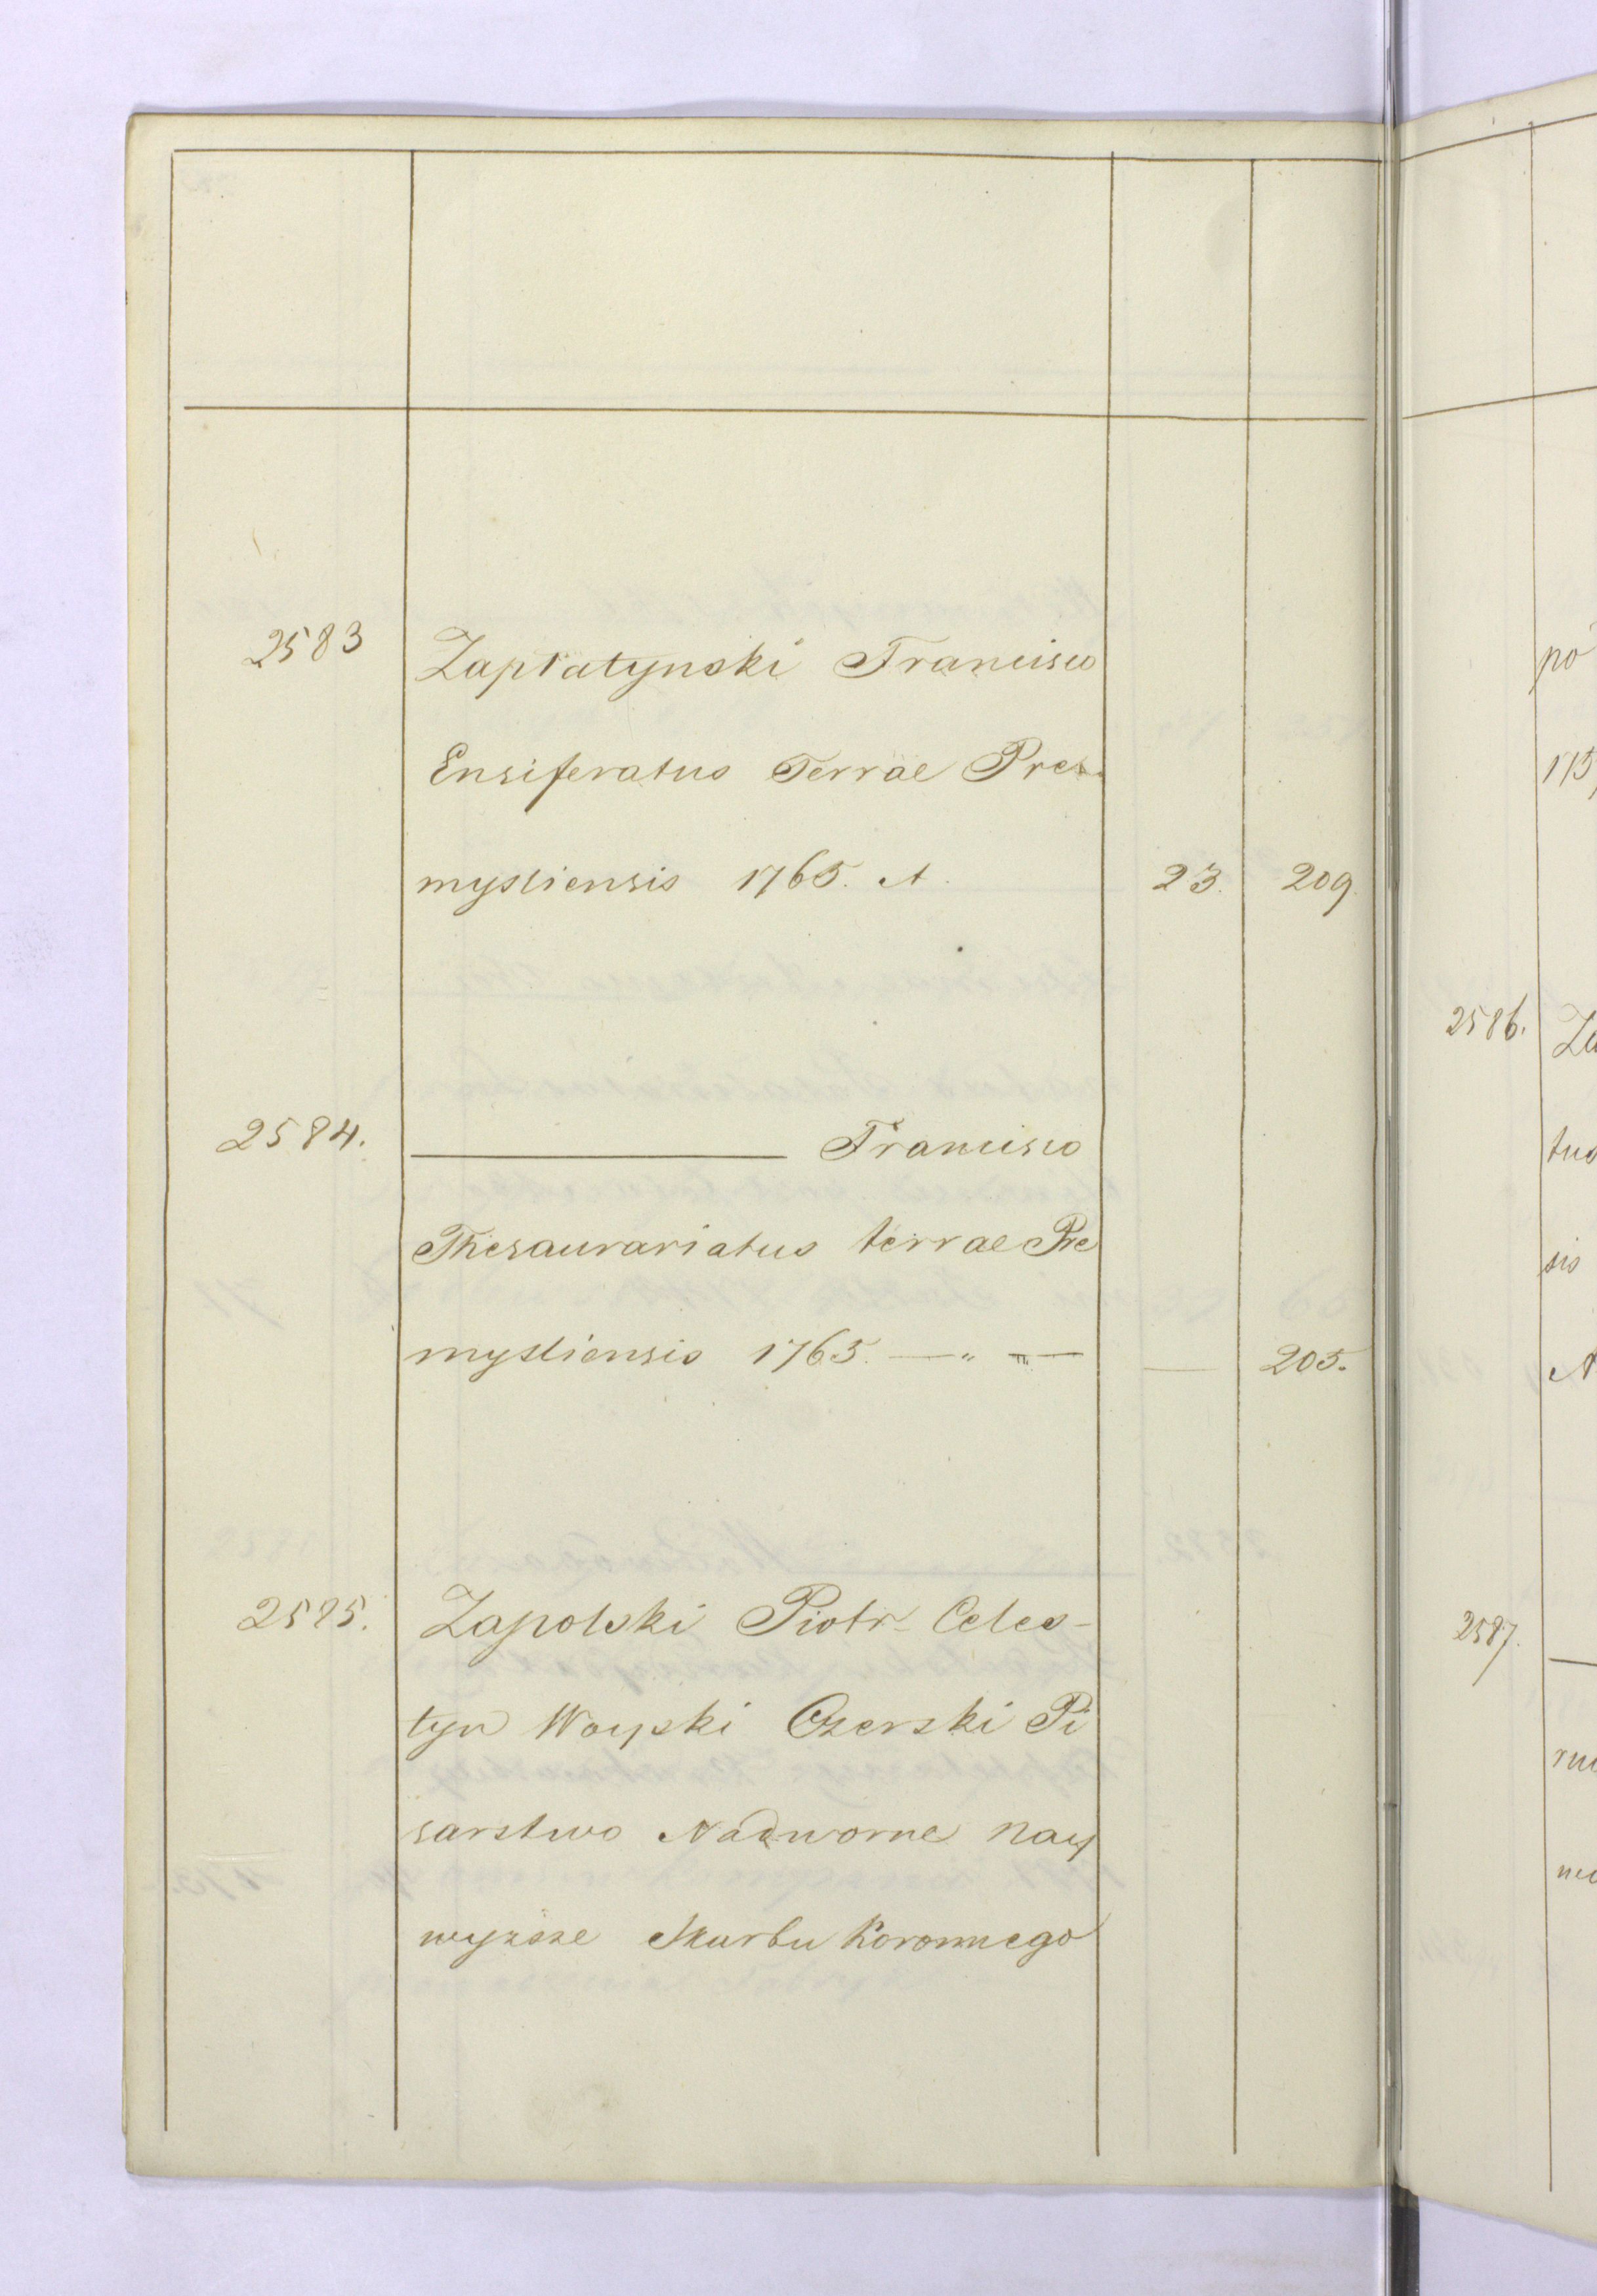 2583 Zapłatynski Francisco
Ensiferatus Terrae Pres.
mysliensis 1765. A. 23. 209.
2584. ——— Francisco
Thesaurariatus terrae Pre
mysliensis 1765. — " — — 205.
2585. Zapolski Piotr Celes-
tyn Woyski Czerski Pi
sarstwo Nadworne Nay
wyzsze Skarbu Koronnego
po
175
2586. Za
tus
sis
A
2587. —